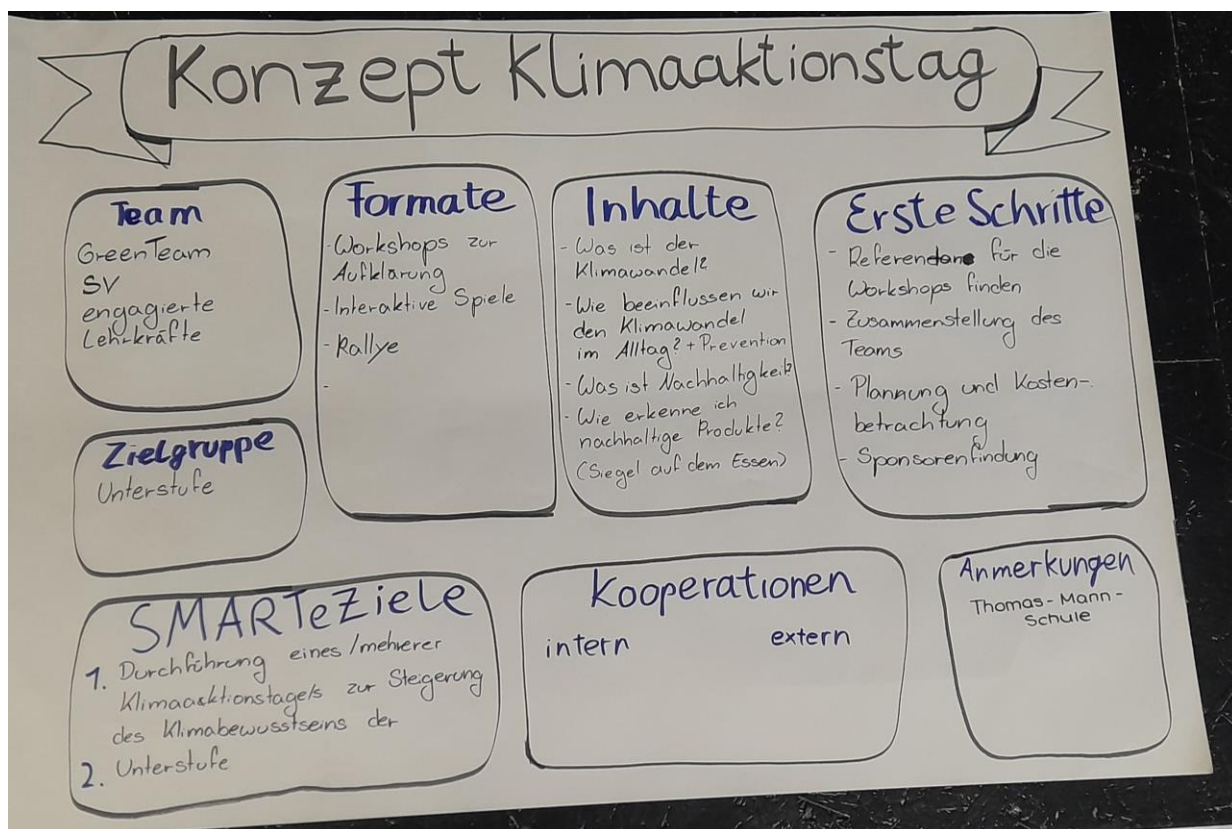 Konzept Klimaaktionstag
Team
GreenTeam
SV
engagierte
Lehrkräfte
Zielgruppe
Unterstufe
Formate
- Workshops zur
Aufklärung
- Interaktive Spiele
- Rallye
-
Inhalte
- Was ist der
Klimawandel?
- Wie beeinflussen wir
den Klimawandel
im Alltag? + Prevention
- Was ist Nachhaltigkeit?
- Wie erkenne ich
nachhaltige Produkte?
(Siegel auf dem Essen)
Erste Schritte
- für die
Workshops finden
- Zusammenstellung des
Teams
- Plannung und Kosten-
betrachtung
- Sponsorenfindung
SMARTe Ziele
1. Durchführung eines/mehrerer
Klimaaktionstage/s zur Steigerung
des Klimabewusstseins der
2. Unterstufe
Kooperationen
intern extern
Anmerkungen
Thomas-Mann-
Schule